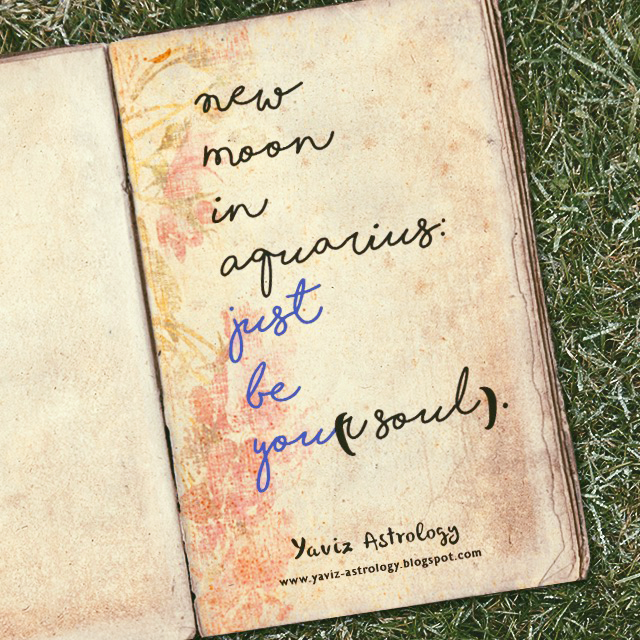 new
moon
in
aquarius:
just
be
you(r soul).
Yaviz Astrology
www.yaviz-astrology.blogspot.com